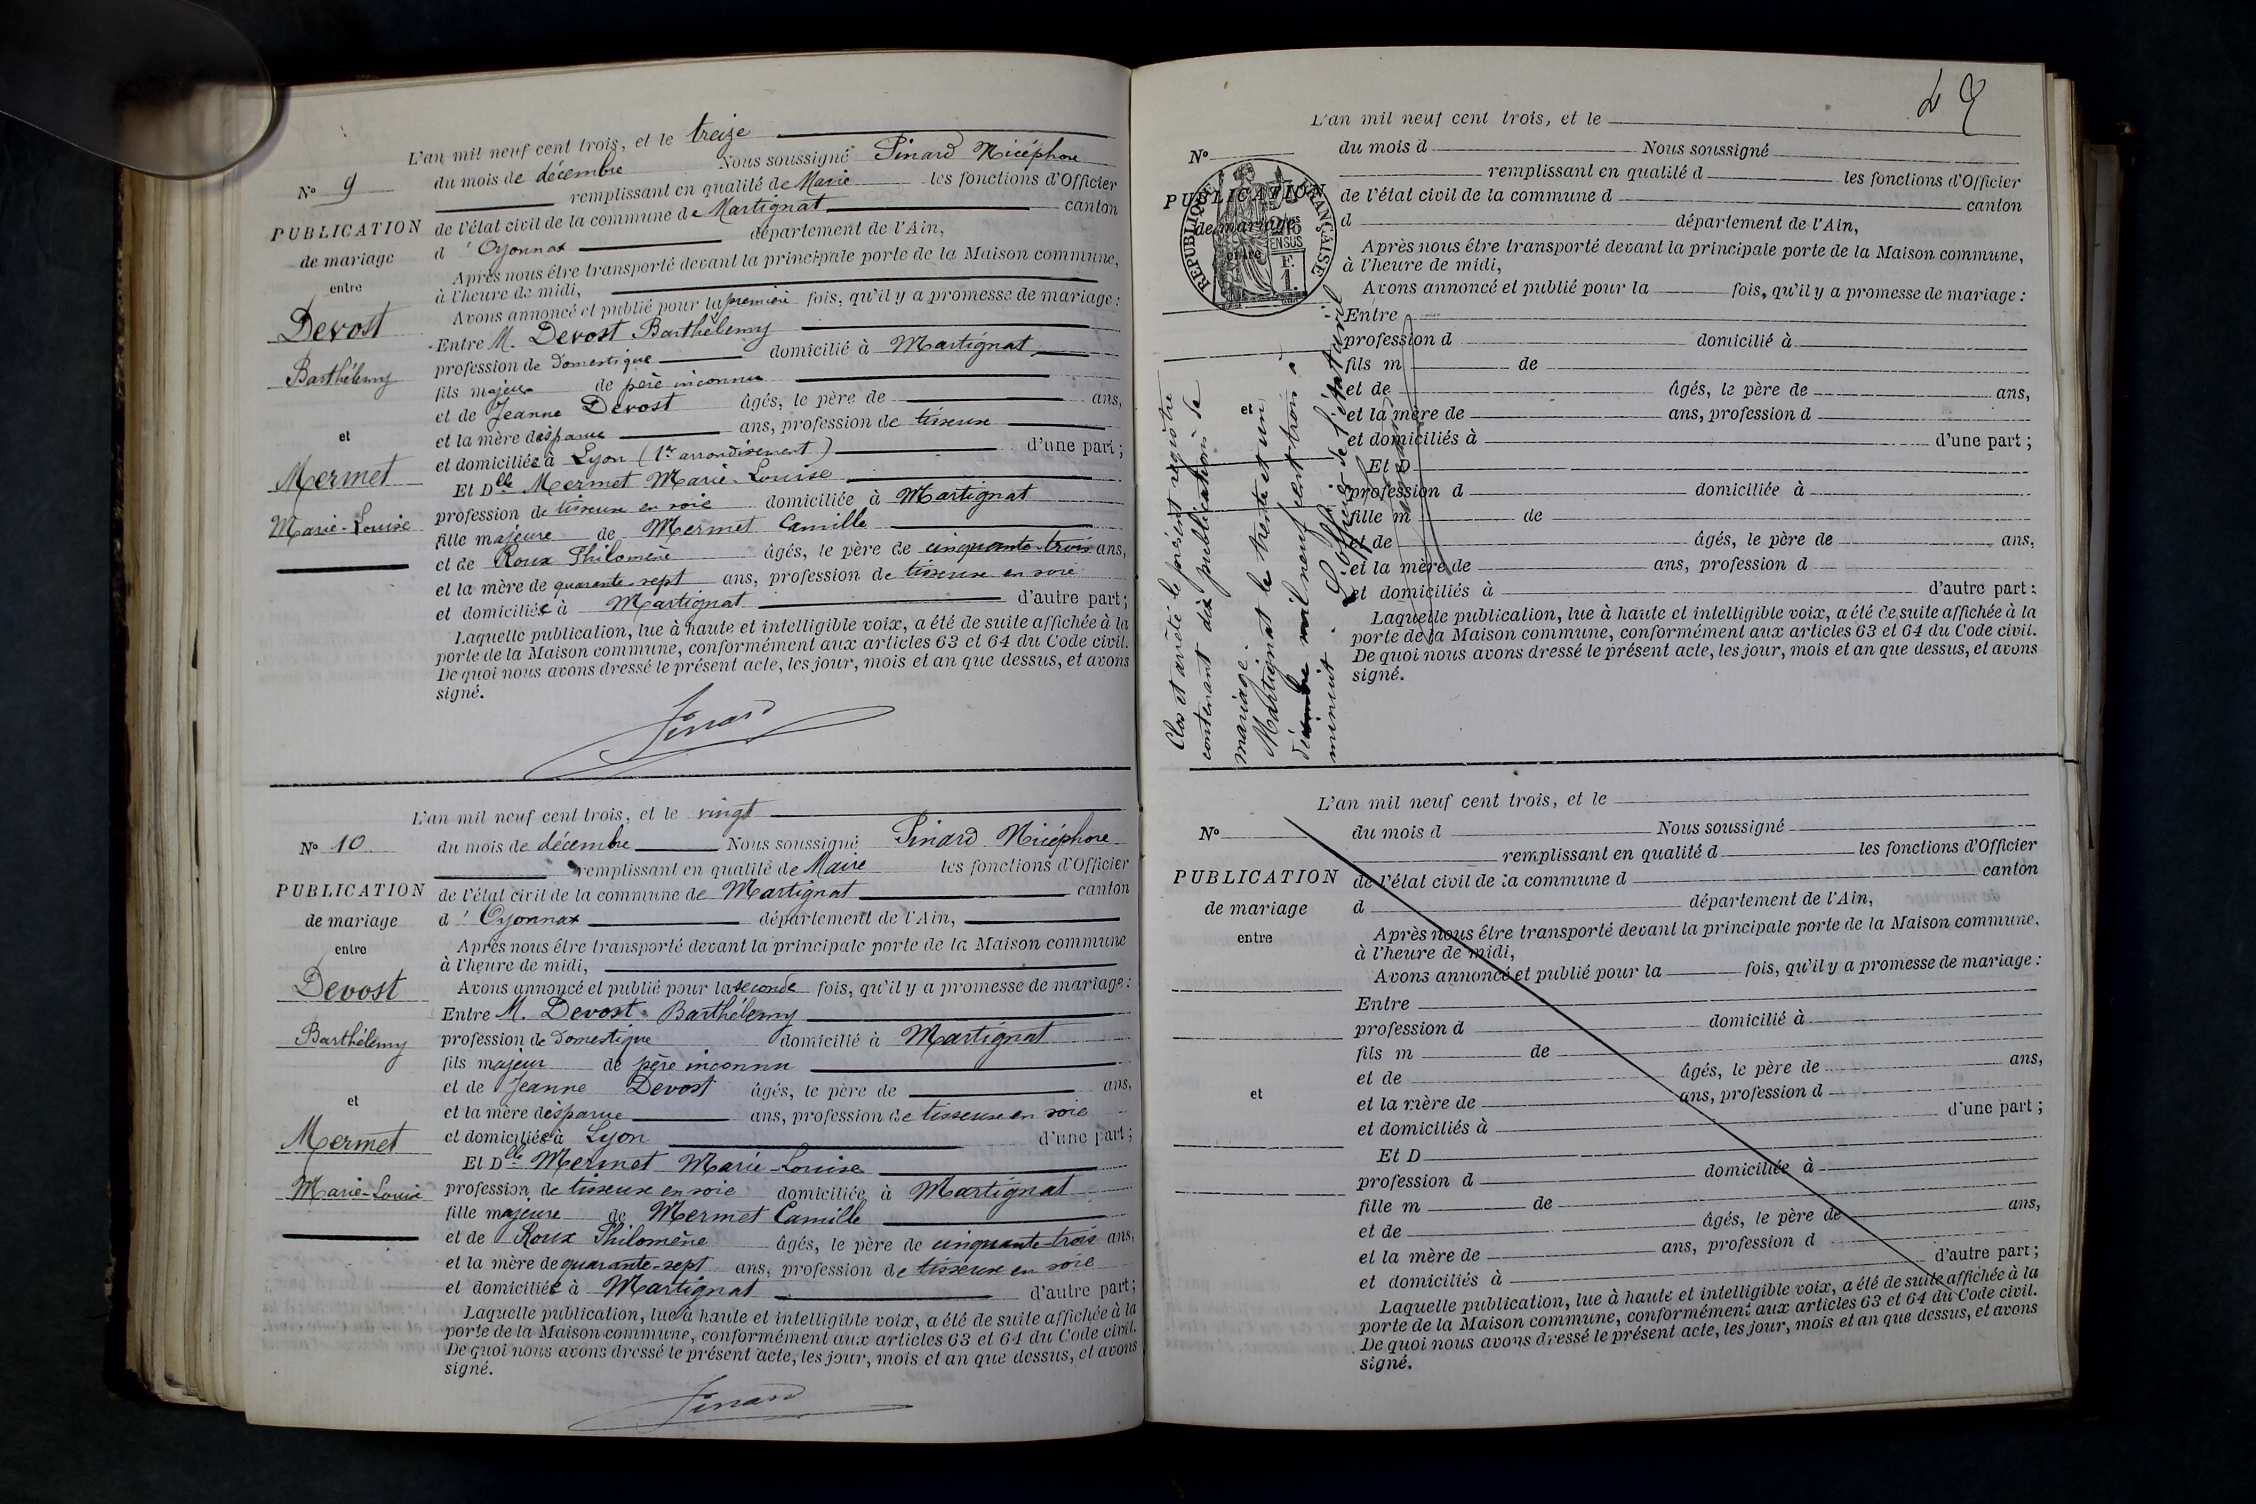 L'an mil neuf cent trois, et le treize
N° 9
du mois de décembre Nous soussigné Pinard Nicéphore
remplissant en qualité de Maire les fonctions d'Officier
PUBLICATION
de mariage
entre
Devost
Barthélemy
et
Mermet
Marie-Louise
de l'état civil de la commune de Martignat canton
d'Oyonnax département de l'Ain,
Après nous être transporté devant la principale porte de la Maison commune,
à l'heure de midi,
Avons annoncé et publié pour la première fois, qu'il y a promesse de mariage :
Entre M. Devost Barthélemy
profession de Domestique domicilié à Martignat
fils majeur de père inconnu
et de Jeanne Devost âgés, le père de ans,
et la mère disparue ans, profession de tisseuse
et domiciliée à Lyon (1er arrondissement) d'une part ;
Et Dlle Mermet Marie-Louise
profession de tisseuse en soie domiciliée à Martignat
fille majeure de Mermet Camille
et de Roux Philomène âgés, le père de cinquante-trois ans,
et la mère de quarante-sept ans, profession de tisseuse en soie
et domiciliée à Martignat d'autre part ;
Laquelle publication, lue à haute et intelligible voix, a été de suite affichée à la
porte de la Maison commune, conformément aux articles 63 et 64 du Code civil.
De quoi nous avons dressé le présent acte, les jour, mois et an que dessus, et avons
signé.
Pinard
L'an mil neuf cent trois, et le vingt
N° 10
du mois de décembre Nous soussigné Pinard Nicéphore
remplissant en qualité de Maire les fonctions d'Officier
PUBLICATION
de mariage
entre
Devost
Barthélemy
et
Mermet
Marie-Louise
de l'état civil de la commune de Martignat canton
d'Oyonnax département de l'Ain,
Après nous être transporté devant la principale porte de la Maison commune
à l'heure de midi,
Avons annoncé et publié pour la seconde fois, qu'il y a promesse de mariage :
Entre M. Devost Barthélemy
profession de Domestique domicilié à Martignat
fils majeur de père inconnu
et de Jeanne Devost âgés, le père de ans,
et la mère disparue ans, profession de tisseuse en soie
et domiciliée à Lyon d'une part ;
Et Dlle Mermet Marie-Louise
profession de tisseuse en soie domiciliée à Martignat
fille majeure de Mermet Camille
et de Roux Philomène âgés, le père de cinquante-trois ans,
et la mère de quarante-sept ans, profession de tisseuse en soie
et domiciliée à Martignat d'autre part ;
Laquelle publication, lue à haute et intelligible voix, a été de suite affichée à la
porte de la Maison commune, conformément aux articles 63 et 64 du Code civil.
De quoi nous avons dressé le présent acte, les jour, mois et an que dessus, et avons
signé.
Pinard
L'an mil neuf cent trois, et le
N°
du mois d Nous soussigné
remplissant en qualité d les fonctions d'Officier
PUBLICATION
de mariage
entre
et
RÉPUBLIQUE FRANÇAISE
EN SUS
F.
1.
de l'état civil de la commune d canton
d département de l'Ain,
Après nous être transporté devant la principale porte de la Maison commune,
à l'heure de midi,
Avons annoncé et publié pour la fois, qu'il y a promesse de mariage :
Entre
profession d domicilié à
fils m de
et de âgés, le père de ans,
et la mère de ans, profession d
et domiciliés à d'une part ;
Et D
profession d domiciliée à
fille m de
et de âgés, le père de ans,
et la mère de ans, profession d
et domiciliés à d'autre part :
Laquelle publication, lue à haute et intelligible voix, a été de suite affichée à la
porte de la Maison commune, conformément aux articles 63 et 64 du Code civil.
De quoi nous avons dressé le présent acte, les jour, mois et an que dessus, et avons
signé.
Clos et arrêté le présent registre
contenant dix publications de
mariage.
Martignat le trente et un
décembre mil neuf cent trois à
minuit. L'officier de l'état civil
L'an mil neuf cent trois, et le
N°
du mois d Nous soussigné
remplissant en qualité d les fonctions d'Officier
PUBLICATION
de mariage
entre
et
de l'état civil de la commune d canton
d département de l'Ain,
Après nous être transporté devant la principale porte de la Maison commune,
à l'heure de midi,
Avons annoncé et publié pour la fois, qu'il y a promesse de mariage :
Entre
profession d domicilié à
fils m de
et de âgés, le père de ans,
et la mère de ans, profession d
et domiciliés à d'une part ;
Et D
profession d domiciliée à
fille m de
et de âgés, le père de ans,
et la mère de ans, profession d
et domiciliés à d'autre part ;
Laquelle publication, lue à haute et intelligible voix, a été de suite affichée à la
porte de la Maison commune, conformément aux articles 63 et 64 du Code civil.
De quoi nous avons dressé le présent acte, les jour, mois et an que dessus, et avons
signé.